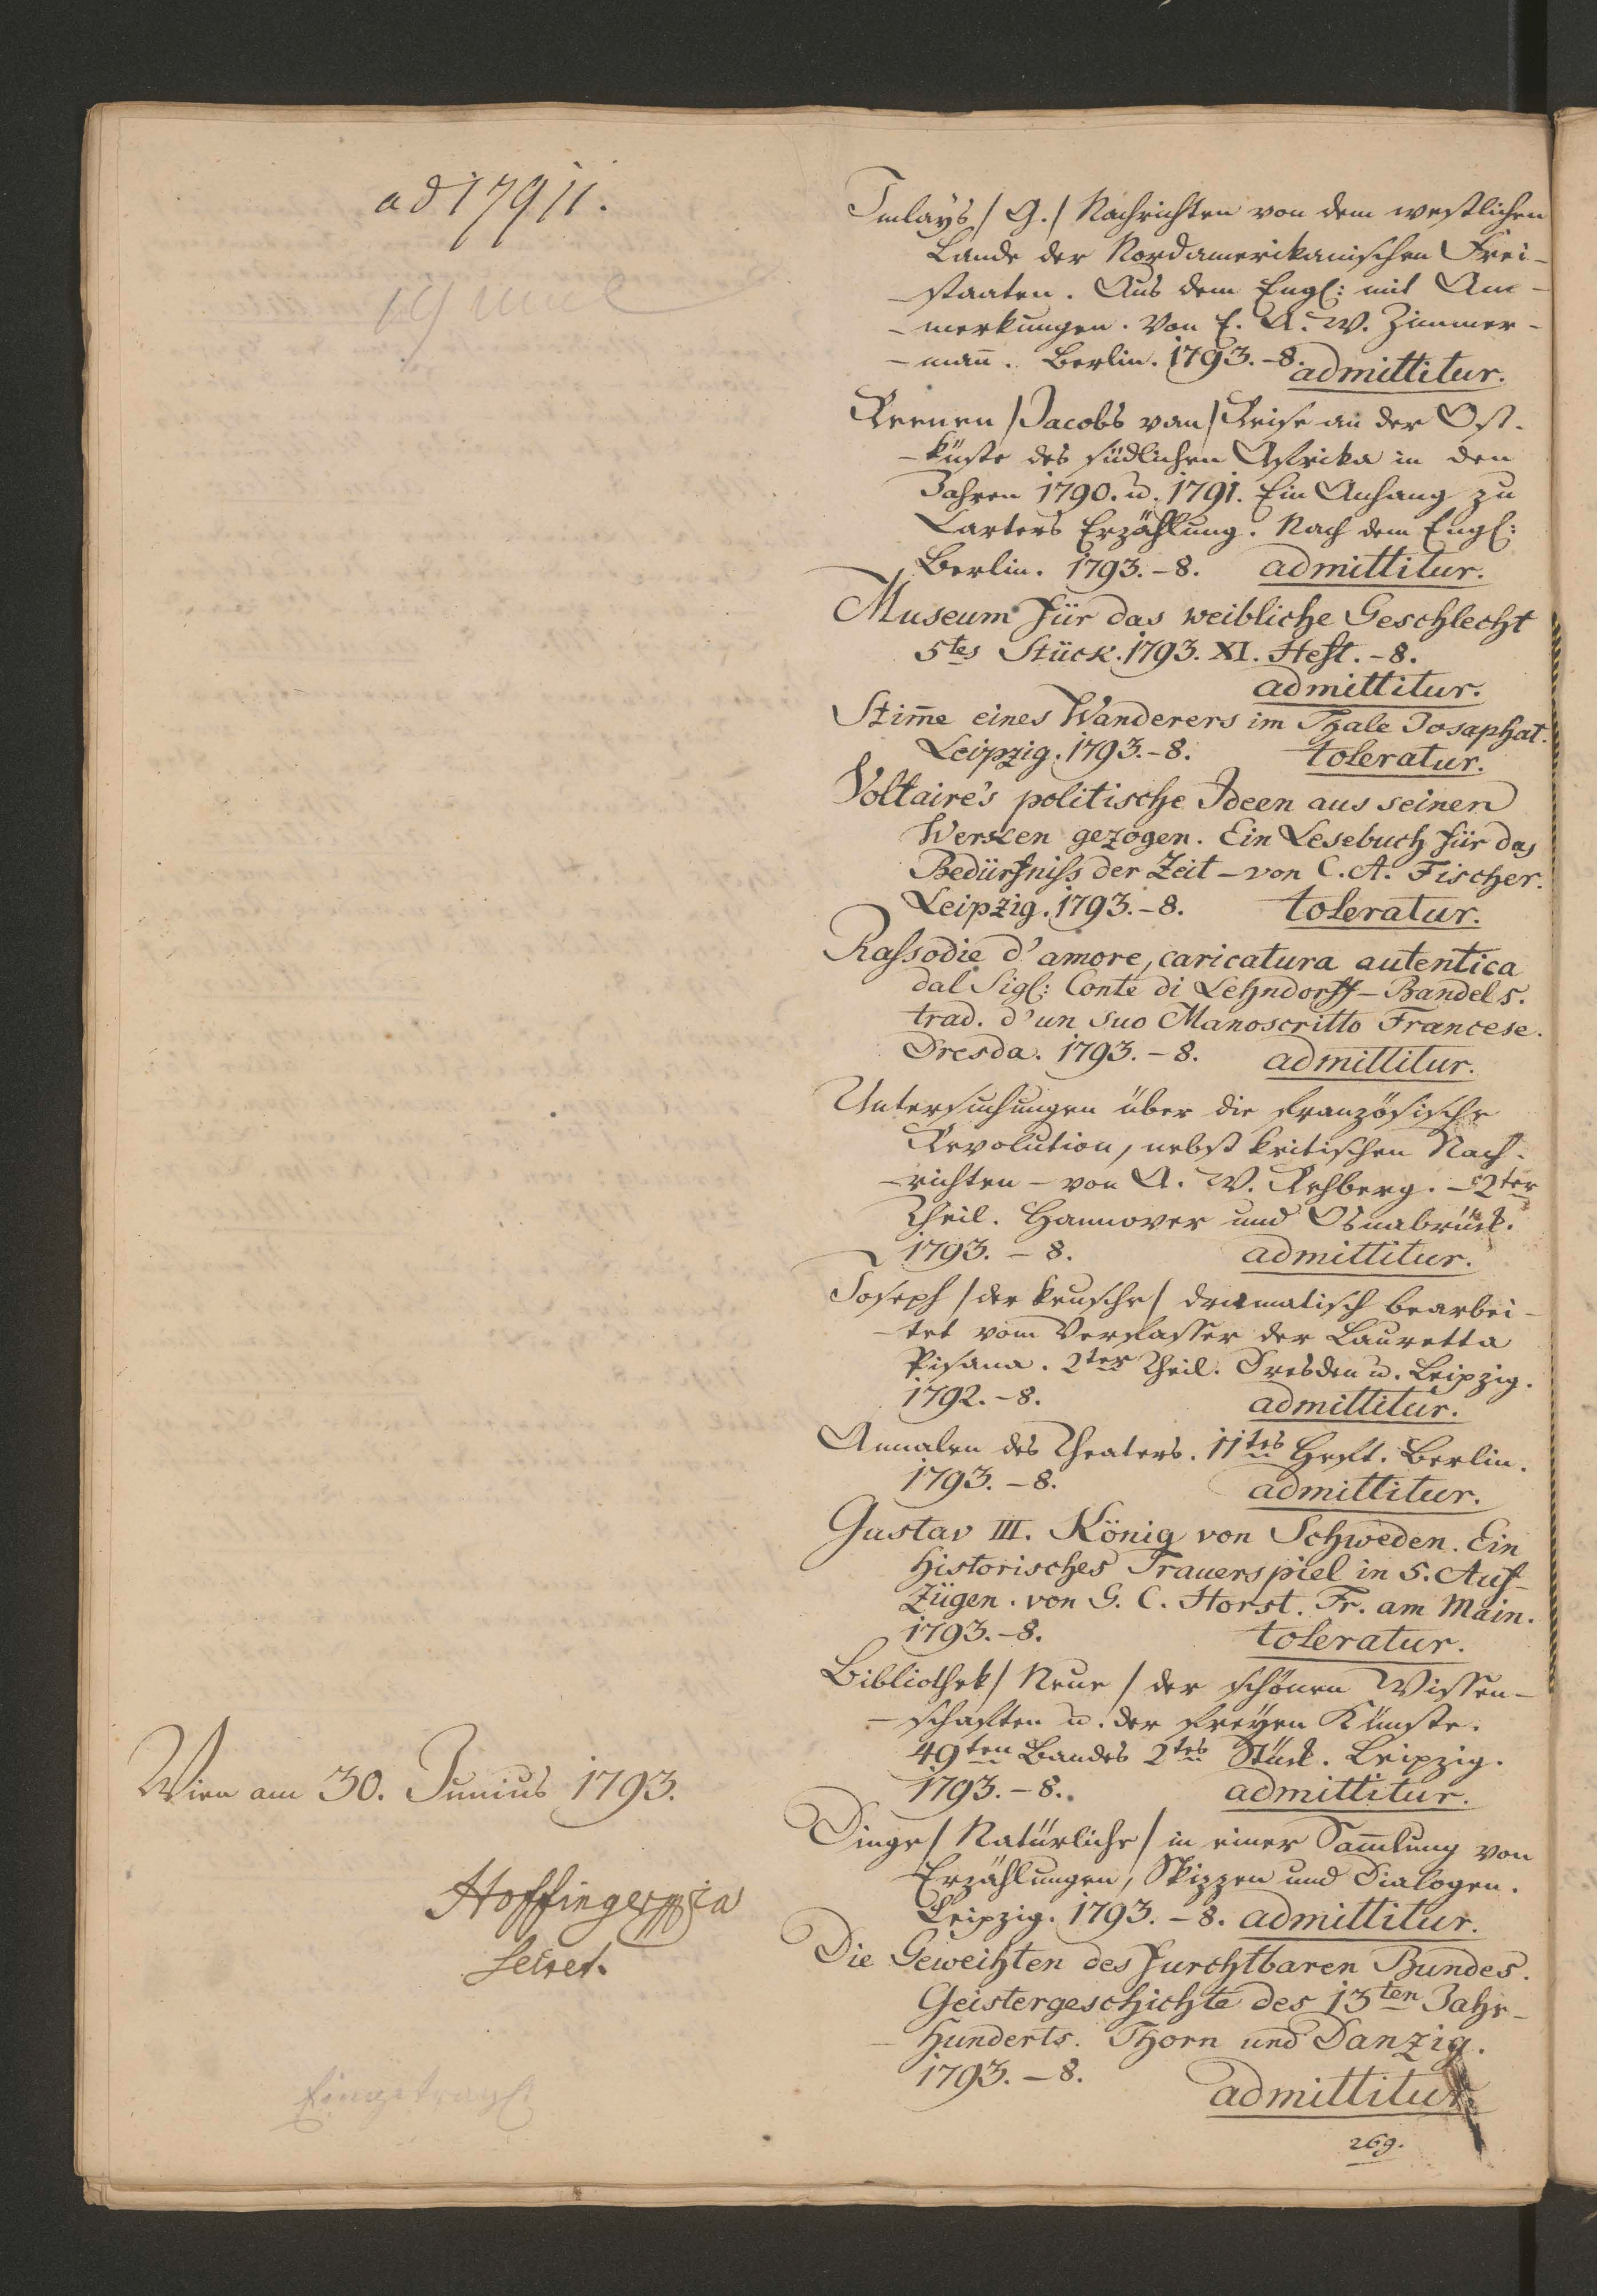 ad 17911.
Wien am 30. Junius 1793.
Hoffinger
Secret.
Imlays /G./ Nachrichten von dem westlichen
Lande der Nordamerikanischen Frei-
-staaten. Aus dem Engl: mit An-
-merkungen. Von E. A. W. Zimmer-
-mañ. Berlin. 1793. - 8. admittitur.
Reenen /Jacobs van/ Reise an der Ost-
-küste des südlichen Afrika in den
Jahren 1790. u. 1791. Ein Anhang zu
Carters Erzählung. Nach dem Engl:
Berlin. 1793. - 8. admittitur.
Museum für das weibliche Geschlecht
5tes Stück. 1793. XI. Heft. - 8.
admittitur.
Stim̄e eines Wanderers im Thale Josaphat.
Leipzig. 1793. - 8. toleratur.
Voltaire's politische Ideen aus seinen
Werken gezogen. Ein Lesebuch für das
Bedürfniss der Zeit - von C. A. Fischer.
Leipzig. 1793. - 8. toleratur.
Rassodie d'amore, caricatura autentica
dal Sigl: Conte di Lehndorff - Bandels.
trad. d'un suo Manoscritto Francese.
Dresda. 1793. - 8. admittitur.
Untersuchungen über die französische
Revolution, nebst kritischen Nach-
-richten - von A. W. Rehberg. - 2ter
Theil. Hannover und Osnabrück.
1793. - 8. admittitur.
Joseph /der keusche/ dramatisch bearbei-
-tet vom Verfasser der Lauretta
Pisana. 2ter Theil. Dresden u. Leipzig.
1792. - 8. admittitur.
Annalen des Theaters. 11tes Heft. Berlin.
1793. - 8. admittitur.
Gustav III. König von Schweden. Ein
historisches Trauerspiel in 5. Auf-
zügen. von G. C. Horst. Fr. am Main.
1793. - 8. toleratur.
Bibliothek /Neue/ der schönen Wissen-
-schaften u. der freyen Künste.
49ten Bandes 2tes Stück. Leipzig.
1793. - 8. admittitur.
Dinge /Natürliche/ in einer Sam̄lung von
Erzählungen, Skizzen und Dialogen.
Leipzig. 1793. - 8. admittitur.
Die Geweihten des furchtbaren Bundes.
Geistergeschichte des 13ten Jahr-
-hunderts. Thorn und Danzig.
1793. - 8.
admittitur.
269.